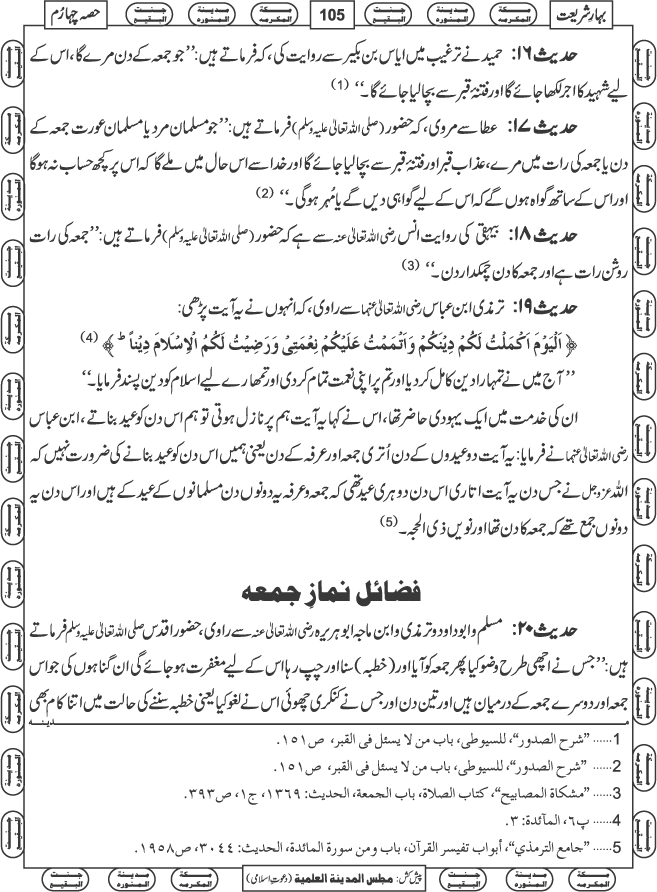 بہارِ شریعت
105
حصہ چہارم
حدیث ۱۶: حمید نے ترغیب میں ایاس بن بکیر سے روایت کی، کہ فرماتے ہیں: ’’جو جمعہ کے دن مرے گا، اس کے
لیے شہید کا اجر لکھا جائے گا اور فتنۂ قبر سے بچا لیا جائے گا۔‘‘ (1)
حدیث ۱۷: عطا سے مروی، کہ حضور (صلی اللہ تعالیٰ علیہ وسلم) فرماتے ہیں: ’’جو مسلمان مرد یا مسلمان عورت جمعہ کے
دن یا جمعہ کی رات میں مرے، عذاب قبر اور فتنۂ قبر سے بچا لیا جائے گا اور خدا سے اس حال میں ملے گا کہ اس پر کچھ حساب نہ ہوگا
اور اس کے ساتھ گواہ ہوں گے کہ اس کے لیے گواہی دیں گے یا مُہر ہوگی۔‘‘ (2)
حدیث ۱۸: بیہقی کی روایت انس رضی اللہ تعالیٰ عنہ سے ہے کہ حضور (صلی اللہ تعالیٰ علیہ وسلم) فرماتے ہیں: ’’جمعہ کی رات
روشن رات ہے اور جمعہ کا دن چمکدار دن۔‘‘ (3)
حدیث ۱۹: ترمذی ابن عباس رضی اللہ تعالیٰ عنہما سے راوی، کہ انہوں نے یہ آیت پڑھی:
﴿ اَلْیَوْمَ اَكْمَلْتُ لَكُمْ دِیْنَكُمْ وَاَتْمَمْتُ عَلَیْكُمْ نِعْمَتِیْ وَرَضِیْتُ لَكُمُ الْاِسْلَامَ دِیْنًا ؕ ﴾ (4)
’’آج میں نے تمہارا دین کامل کر دیا اور تم پر اپنی نعمت تمام کر دی اور تمھارے لیے اسلام کو دین پسند فرمایا۔‘‘
ان کی خدمت میں ایک یہودی حاضر تھا، اس نے کہا یہ آیت ہم پر نازل ہوتی تو ہم اس دن کو عید بناتے، ابن عباس
رضی اللہ تعالیٰ عنہما نے فرمایا: یہ آیت دو عیدوں کے دن اُتری جمعہ اور عرفہ کے دن یعنی ہمیں اس دن کو عید بنانے کی ضرورت نہیں کہ
اللہ عزوجل نے جس دن یہ آیت اتاری اس دن دوہری عید تھی کہ جمعہ و عرفہ یہ دونوں دن مسلمانوں کے عید کے ہیں اور اس دن یہ
دونوں جمع تھے کہ جمعہ کا دن تھا اور نویں ذی الحجہ۔ (5)
فضائل نمازِ جمعہ
حدیث ۲۰: مسلم و ابوداود و ترمذی و ابن ماجہ ابوہریرہ رضی اللہ تعالیٰ عنہ سے راوی، حضور اقدس صلی اللہ تعالیٰ علیہ وسلم فرماتے
ہیں: ’’جس نے اچھی طرح وضو کیا پھر جمعہ کو آیا اور (خطبہ) سنا اور چپ رہا اس کے لیے مغفرت ہو جائے گی ان گناہوں کی جو اس
جمعہ اور دوسرے جمعہ کے درمیان ہیں اور تین دن اور جس نے کنکری چھوئی اس نے لغو کیا یعنی خطبہ سننے کی حالت میں اتنا کام بھی
1...... "شرح الصدور"، للسيوطي، باب من لا يسئل في القبر، ص١٥١.
2...... "شرح الصدور"، للسيوطي، باب من لا يسئل في القبر، ص١٥١.
3...... "مشكاة المصابيح"، كتاب الصلاة، باب الجمعة، الحديث: ١٣٦٩، ج١، ص٣٩٣.
4...... پ٦، المآئدة: ٣.
5...... "جامع الترمذي"، أبواب تفيسر القرآن، باب ومن سورة المائدة، الحديث: ٣٠٤٤، ص١٩٥٨.
پیش کش: مجلس المدینۃ العلمیۃ (دعوتِ اسلامی)